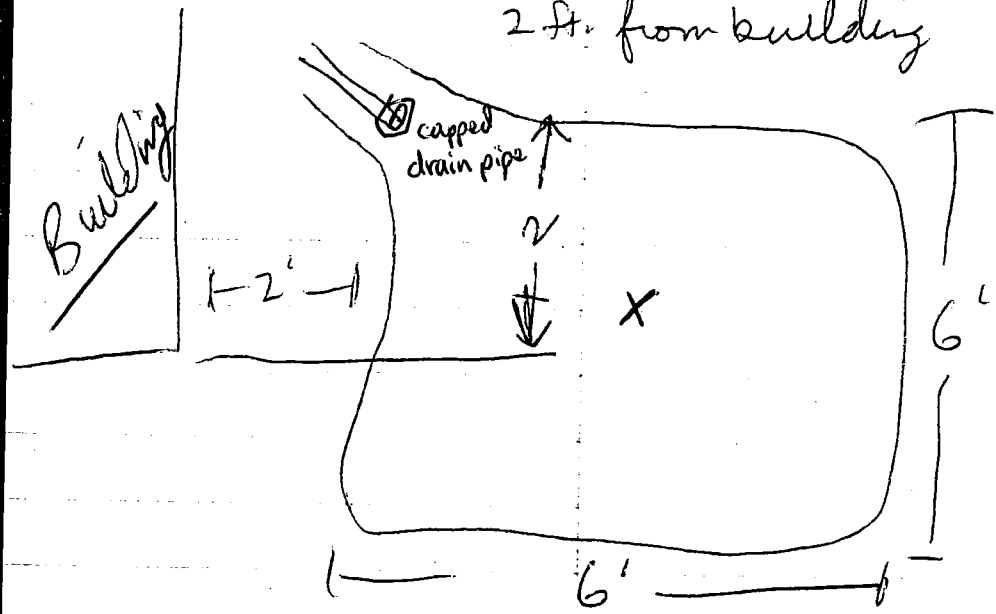 2 ft. from building
Building
capped
drain pipe
2'
2
X
6'
6'